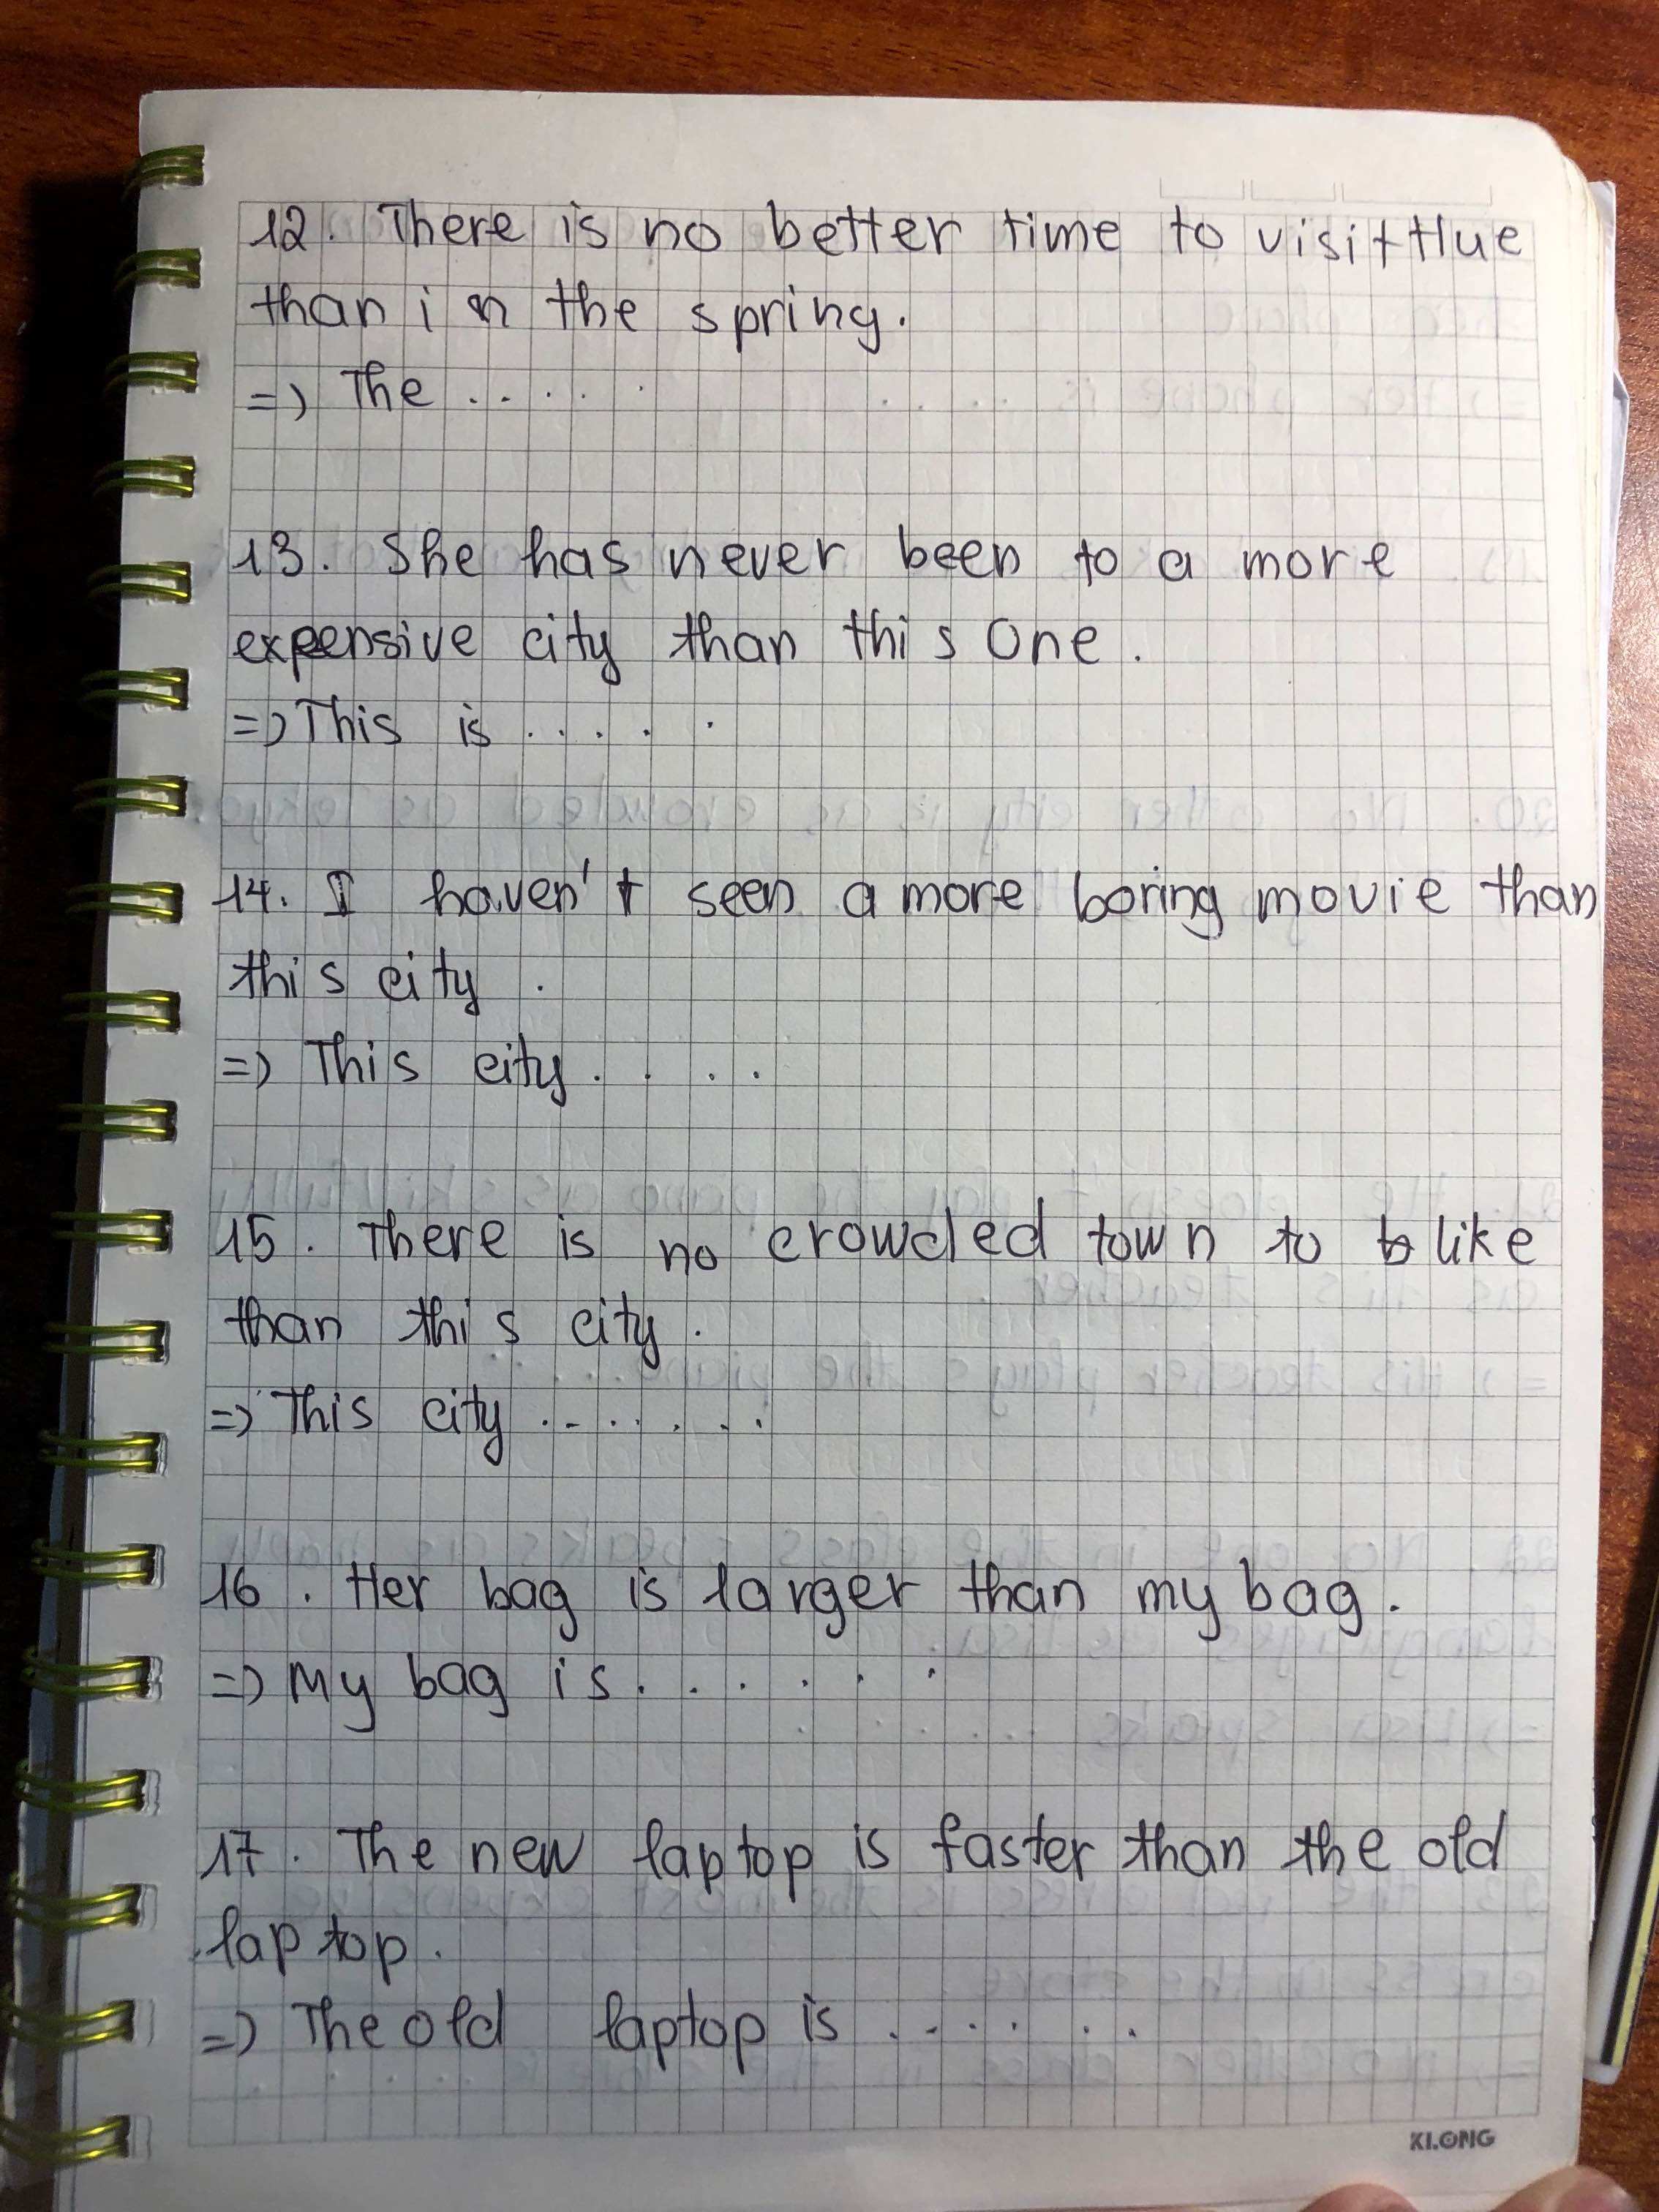 12. There is no better time to visit Hue
than in the spring.
=> The .....
13. She has never been to a more
expensive city than this one.
=> This is .....
14. I haven't seen a more boring movie than
this city.
=> This city....
15. There is no crowded town to like
than this city.
=> This city .......
16. Her bag is larger than my bag.
=> My bag is......
17. The new laptop is faster than the old
laptop.
=> The old laptop is ......
KLONG